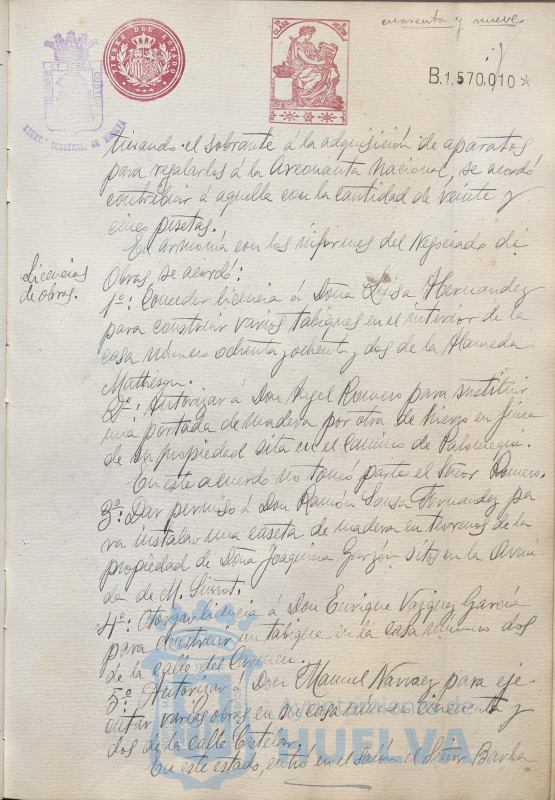 cuarenta y nueve
TIMBRE DEL ESTADO
B.1.570.010*
AYUNT.º CONSTNAL. DE HUELVA
tinando el sobrante á la adquisición de aparatos
para regalarlos á la Aeronáutica Nacional, se acordó
contribuir á aquella con la cantidad de veinte y
cinco pesetas.
En armonía con los informes del Negociado de
Licencias
de obras.
Obras se acordó:
1º: Conceder licencia á Doña Luisa Hernandez
para construir varios tabiques en el interior de la
casa número ochenta y ochenta y dos de la Alameda
Mattheson.
2º: Autorizar á Don Angel Romero para sustituir
una portada de madera por otra de hierro en finca
de su propiedad sita en el Camino de
En este acuerdo no tomó parte el Señor Romero.
3º: Dar permiso á Don Ramón Sousa Fernandez pa
ra instalar una caseta de madera en terrenos de la
propiedad de Doña Joaquina Garzón sitos en la Aveni
da de M. Siurot.
4º: Otorgar licencia á Don Enrique Vazquez García
para construir un tabique en la casa número dos
de la calle del Carmen.
5º: Autorizar á Don Manuel Narvaez para eje
cutar varias obras en su casa número ochenta y
dos de la calle Castelar.
En este estado, entró en el salón el Señor Barba
HUELVA